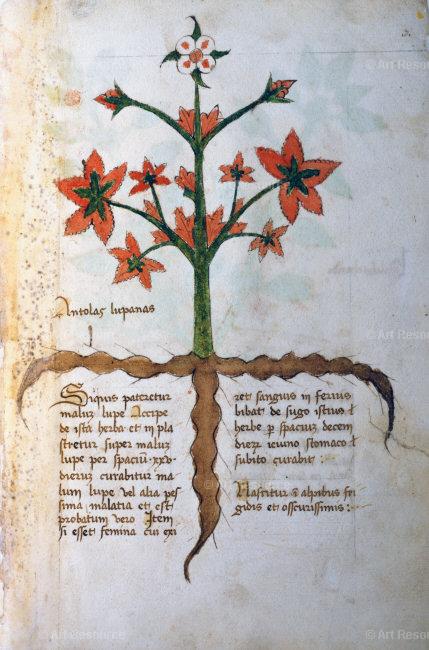 Antolas lupanas
Siquis pateretur
maluz lupe Accipe
de ista herba et in pla
stretur super maluz
lupe per spaciuz .xxx.
dieruz curabitur ma
lum lupe vel alia pes
sima malatia et est
probatum vero Item
si esset femina cui exi
ret sanguis in ferius
bibat de sugo istius
herbe p spacium decem
dieruz ieiuno stomaco
subito curabit :
Nascitur i alpibus fri
gidis et osscurissimis :
© Art Resource
© Art Resource
© Art Resource
© Art Resource
© Art Resource